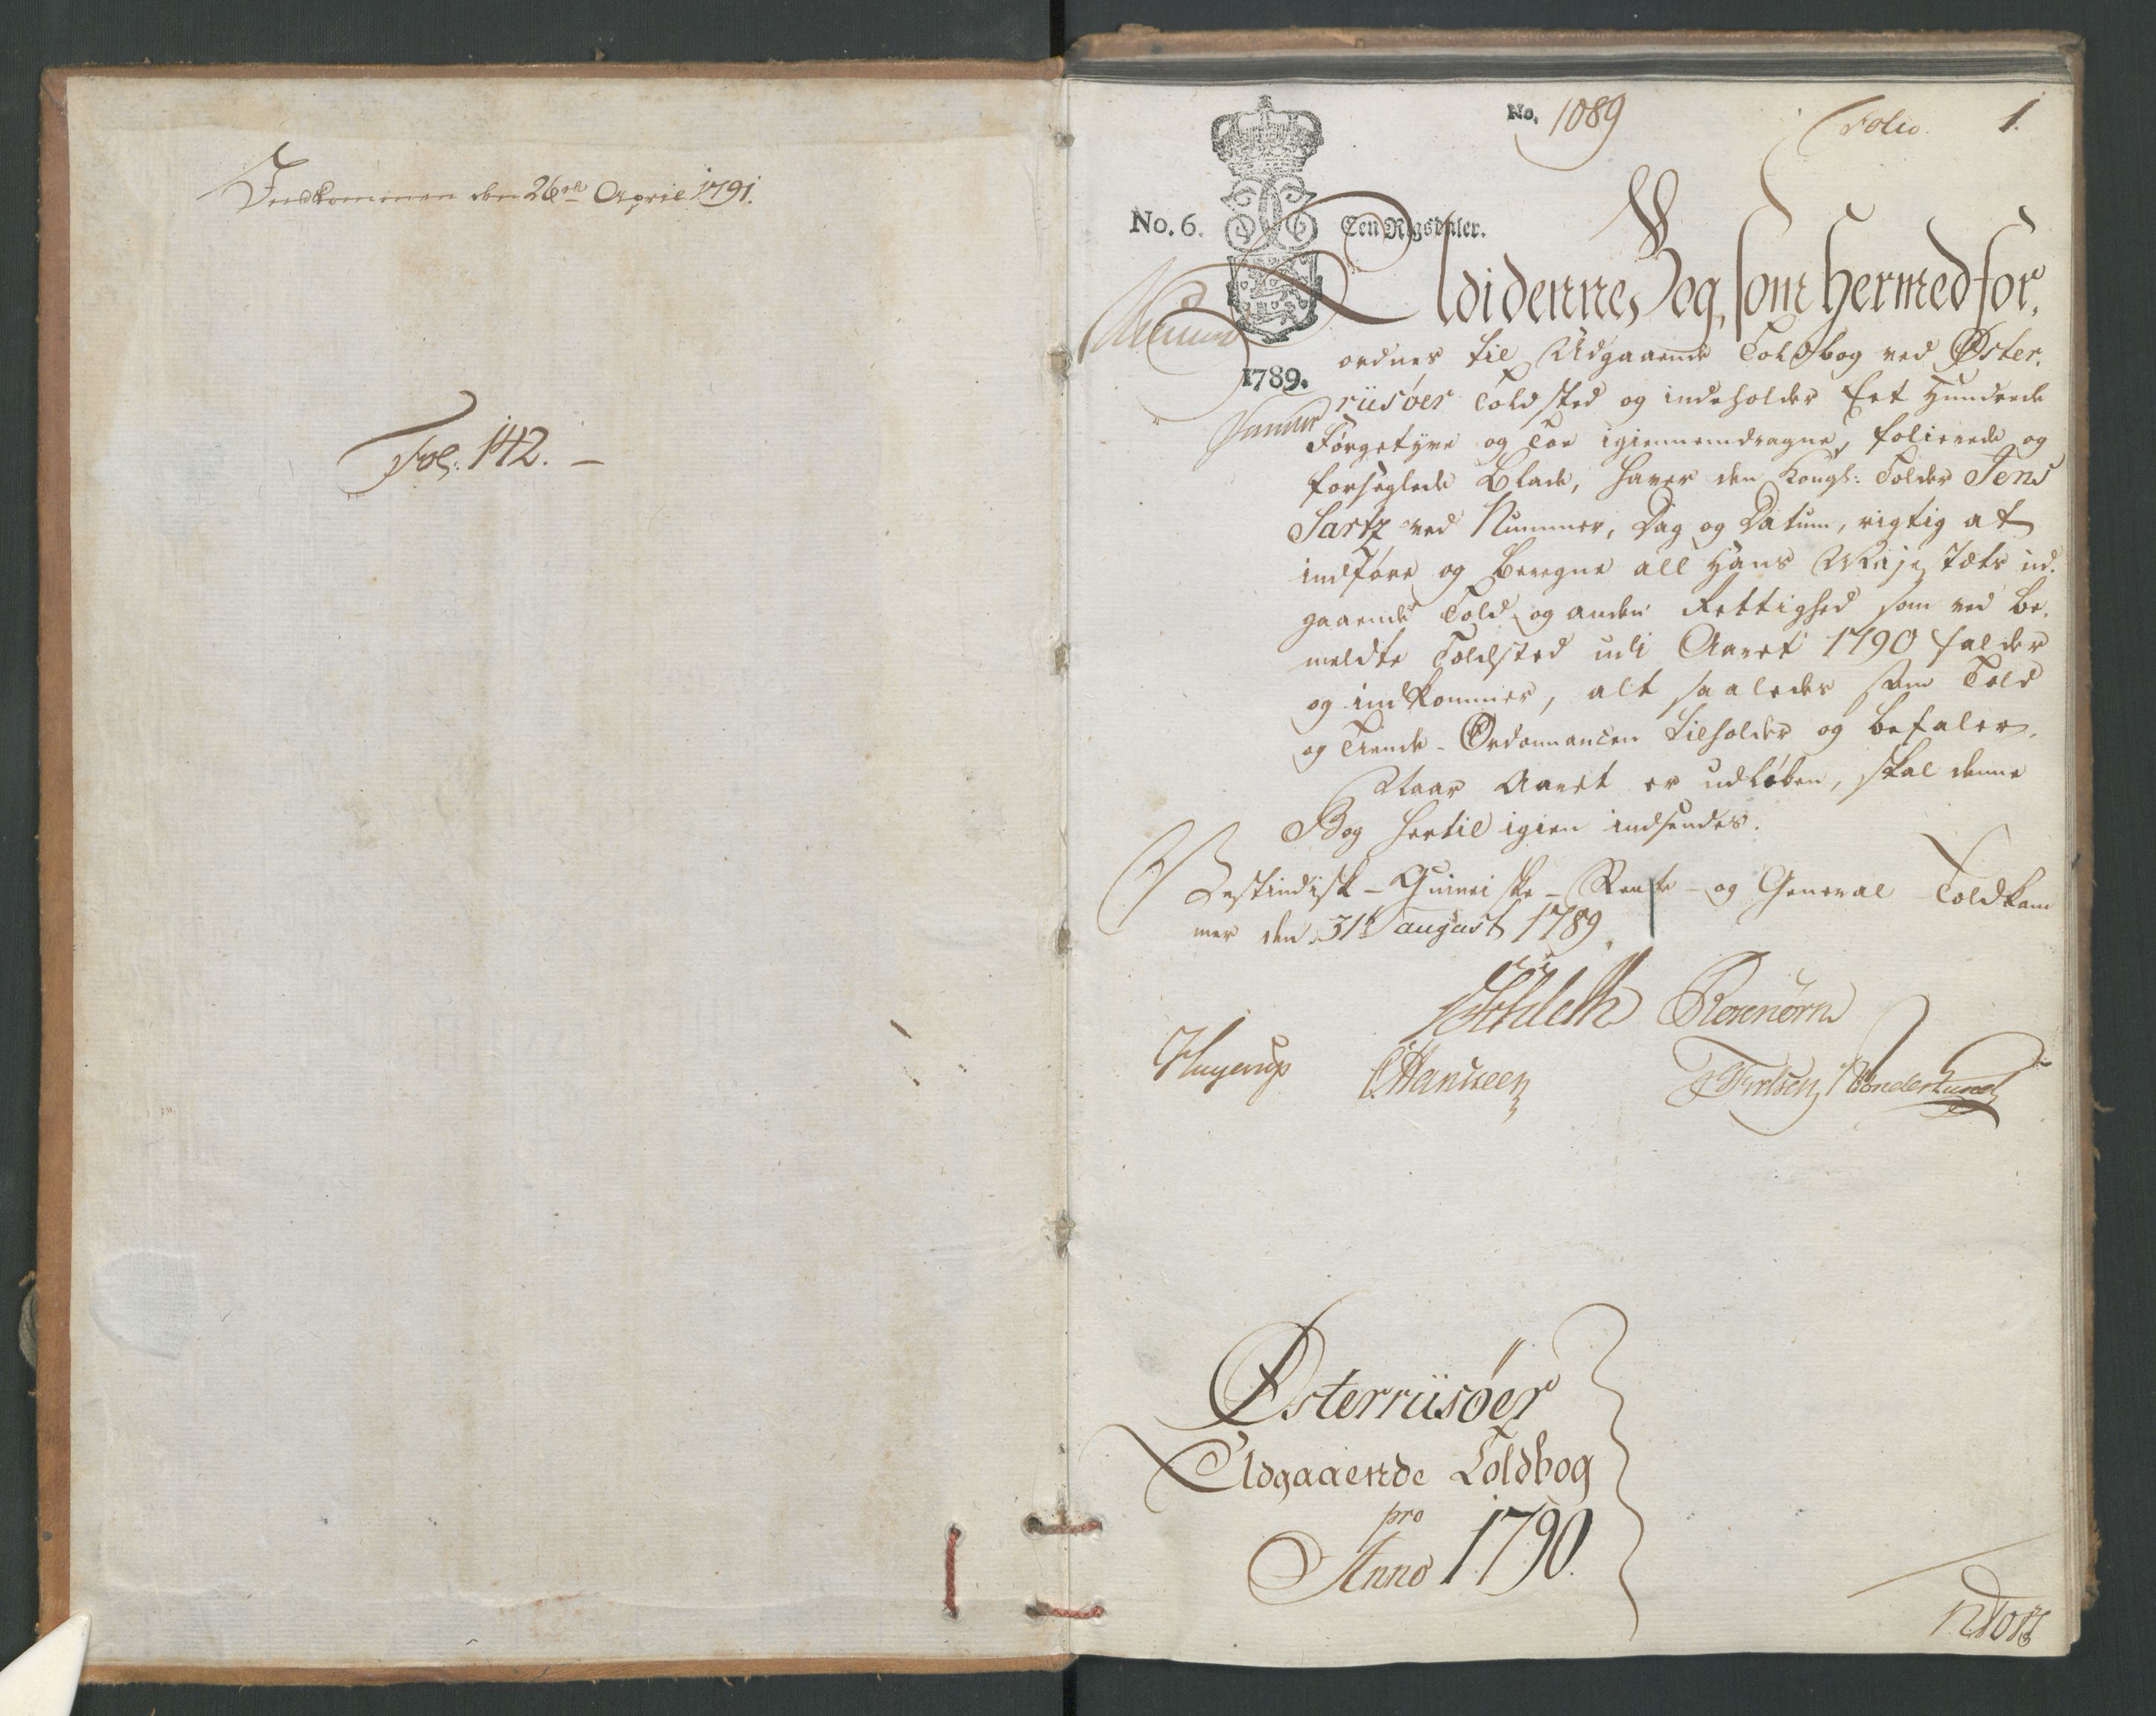 Indkommen den 26de April 1791.
Fol: 142. —
No. 1089
Folio 1.
No. 6.
Een Rigsdaler.
1789.
Udi denne Bog, som hermed for,
ordnes til Udgaaende Toldbog ved Øster,
riisöer Toldsted og indeholder Eet Hundrede
Førgetyve og Toe igiennemdragne, folierede og
forseglede Blade, haver den Kongl: Tolder Jens
Sartz ved Nummer, Dag og Datum, rigtig at
indføre og beregne all Hans Majestæts ud,
gaaende Told og anden Rettighed som ved be,
meldte Toldsted udi Aaret 1790 falder
og indkommer, alt saaledes som Told
og Tiende-Ordonnancen tilholder og befaler.
Naar Aaret er udløben, skal denne
Bog hertil igien indsendes.
Vestindisk-Guineiske-Rente- og General Toldkam
mer den 31te august 1789.
Rosenörn
Hagerup CHanseen
Østerriisöer
Udgaaende Toldbog
pro
Anno 1790.